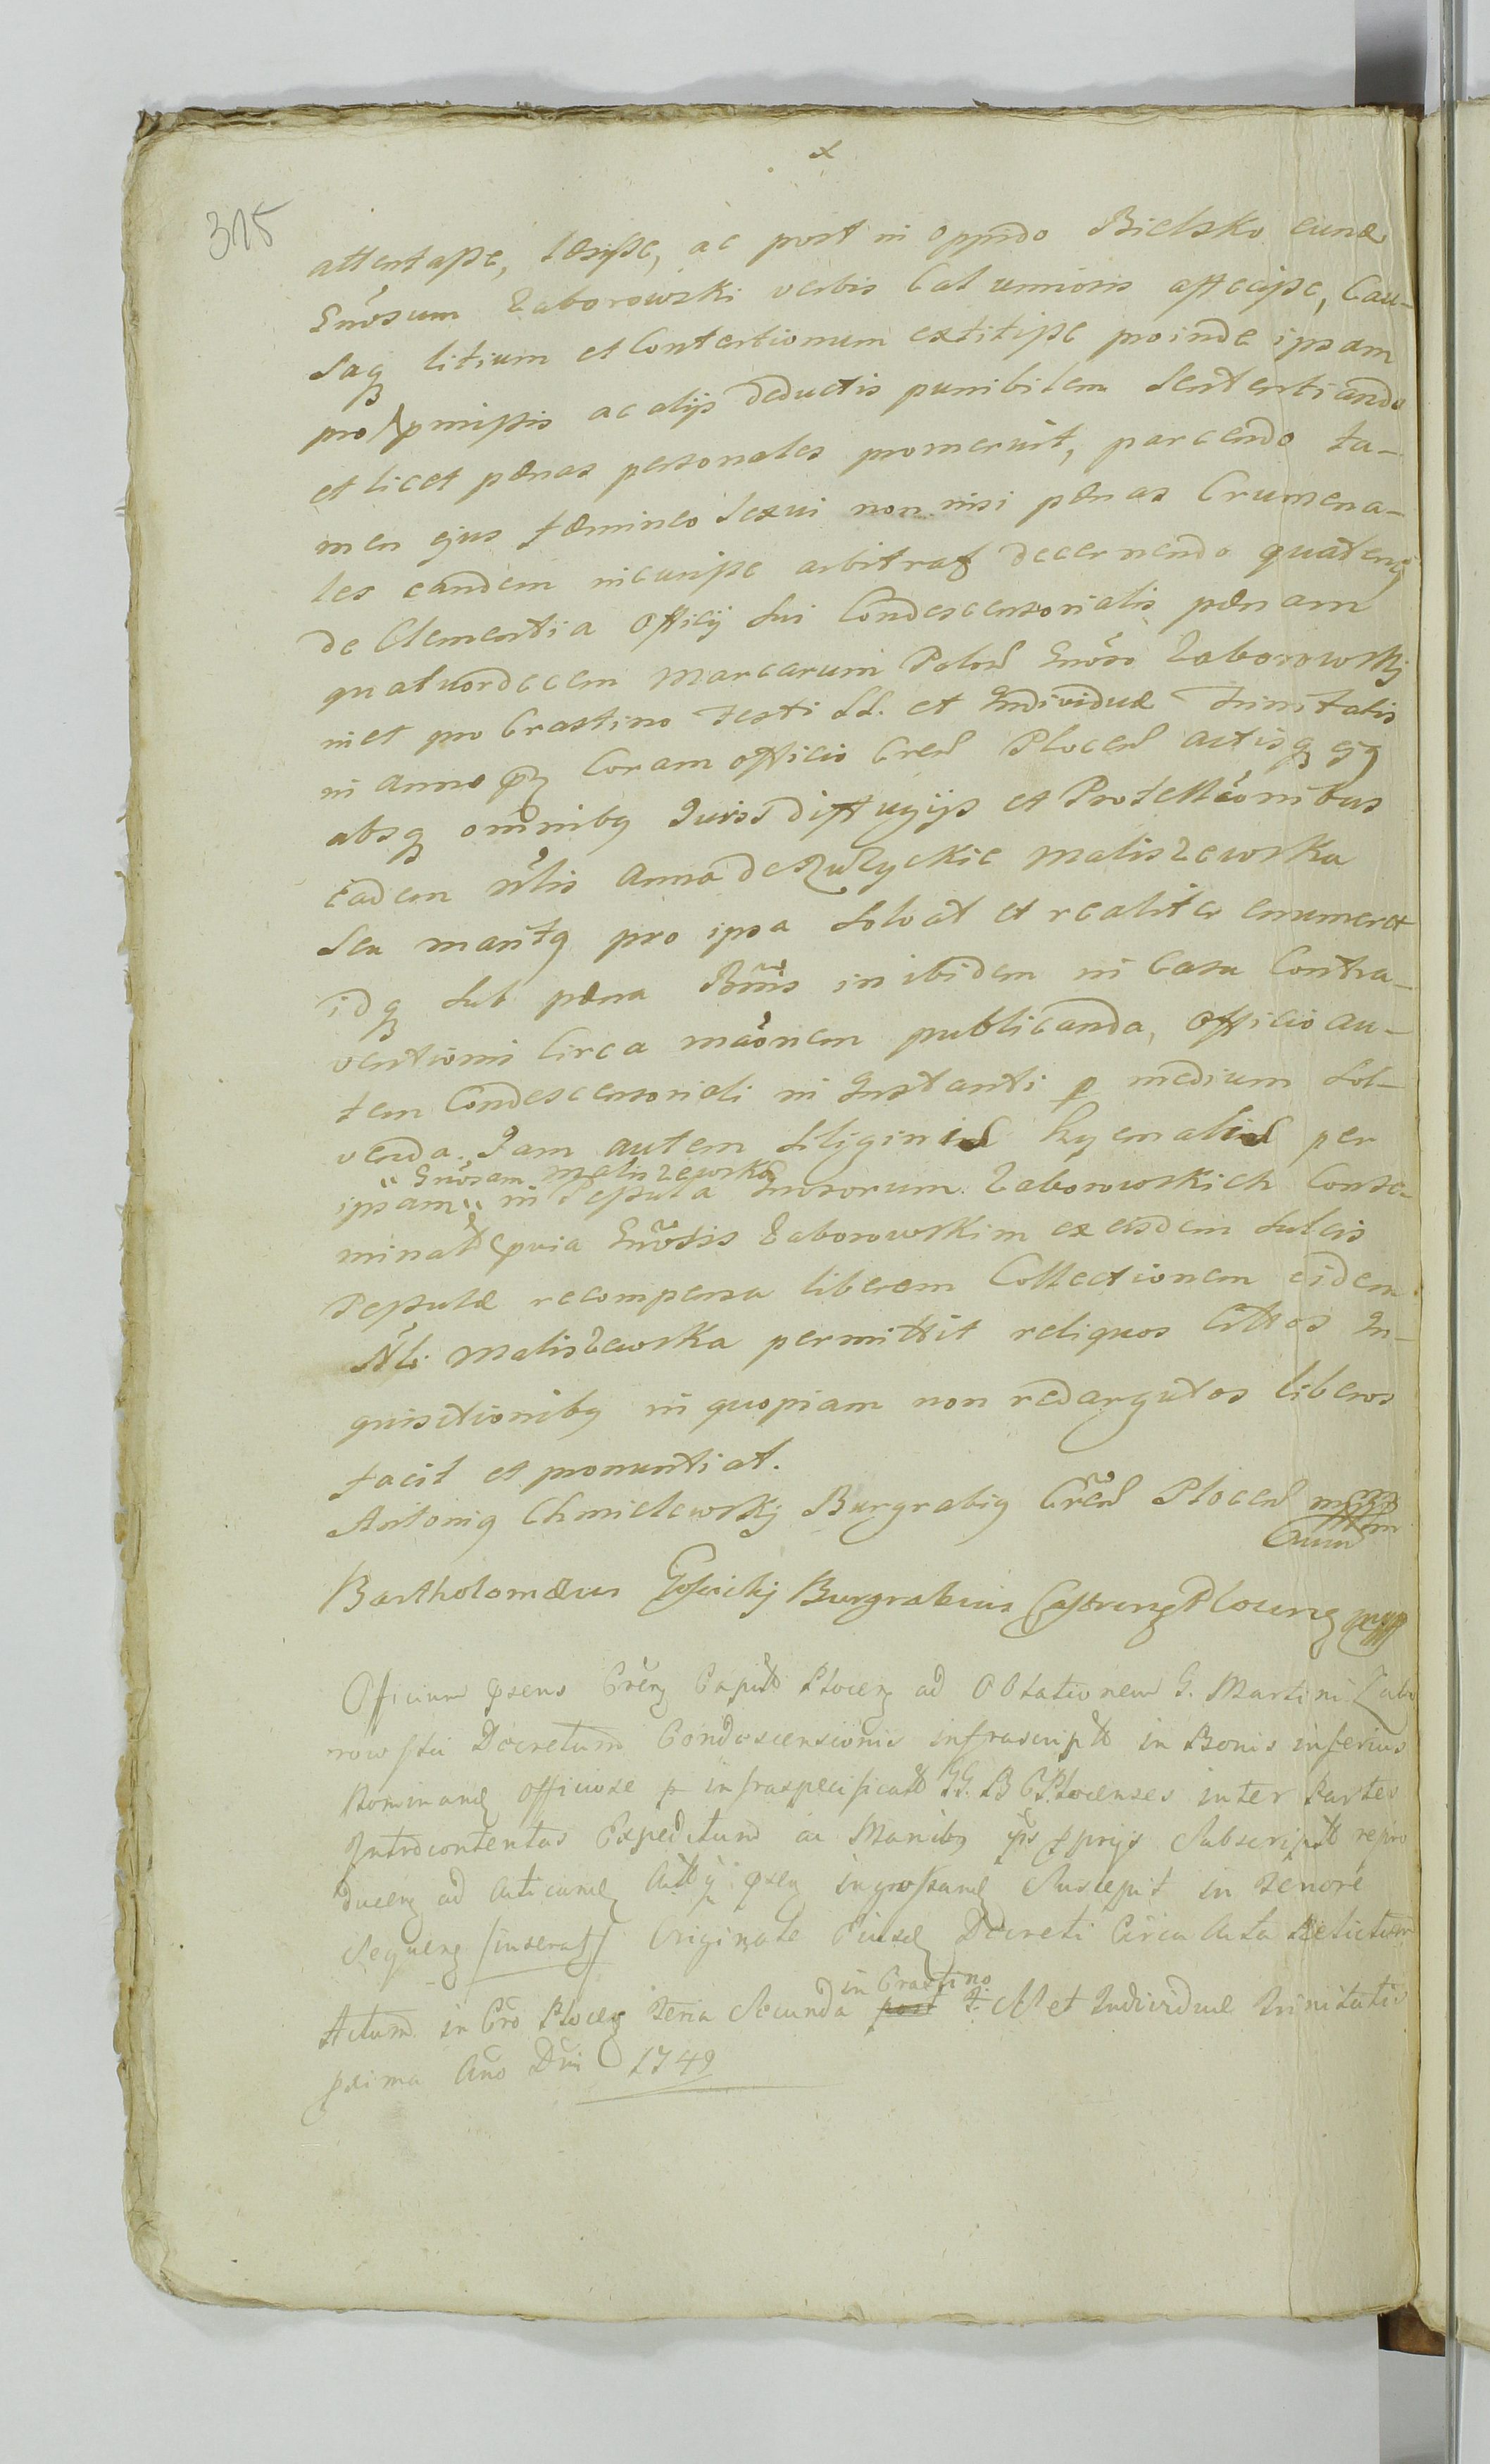 x
315
attentasse, læsisse, ac post in Oppido Bielsko eund
Gnõsum Zaborowski verbis Calumniosis affecisse, Cau-
saq litium et Contentionum extitisse proinde ipsam
pro pmissis ac alijs deductis punibilem Sententiando
et licet pœnas personales promeruit, parcendo ta-
men ejus fœmineo Sexui non nisi pœnas Crumena-
les eandem incurisse arbitratq decernendo quatenq
de Clementia Officij Sui Condescensorialis pœnam
quatuordecem Marcarum Polon Gnõso Zaborowskj
in et pro Crastino Festi SS. et Individuæ Trinitatis
in anno Coram officio Cren Plocen actisq ejq
absq omnibq Juris diffugijs et Protestãonibus
Eadem Nlis Anna de Maliszewska
Seu maritq pro ipsa Solvat et realiter enumeret
idq Sub pœna Bnnis in ibidem in Casu Contra-
ventionis Circa mãonem publicanda, Officio au-
tem Condescensoriali in Instanti p medium Sol-
venda. Jam autem Siliginis hyemalis per
" Gnõsam Maliszewska
ipsam " in Gnosorum Zaborowskich Conse-
minat pvia Gnõsis Zaborowskim ex eisdem Sulcis
recompensa liberam Collectionem eidem
Nli Maliszewska permittit reliquos Cittos In-
quisitionibq in quopiam non redargutos liberos
facit et pronuntiat.
Antoniq Chmielewskj Burgrabiq Cren Plocen mpp
Bartholomæus Gosickj Burgrabius Castrens Plocens mpp
Officium psens Cren Capit Plocen ad Oblationem G. Martini Zabo
rowski Decretum Condescensionis infrascript in Bonis inferius
Nominand Officiose p infraspecificat GG. B C Plocenses inter Partes
Introcontentas Expeditum ac Manibq pprijs Subscript repro
ducen ad Acticand psen ingrossand Suscepit in Tenore
Sequen /inserat/ Originale Ejusd Decreti Circa Acta Relictum
in Crastino
Actum in Cro Plocen Feria Secunda post F. SS et Individuæ Trinitatis
prima Ano Dni 1749